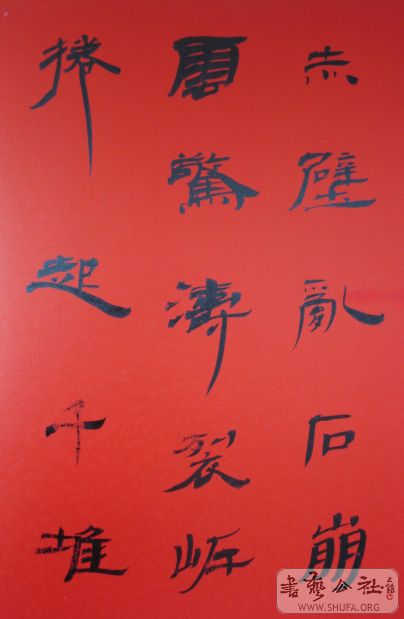 赤壁亂石崩
雲驚濤裂岸
捲起千堆
書藝公社
WWW.SHUFA.ORG